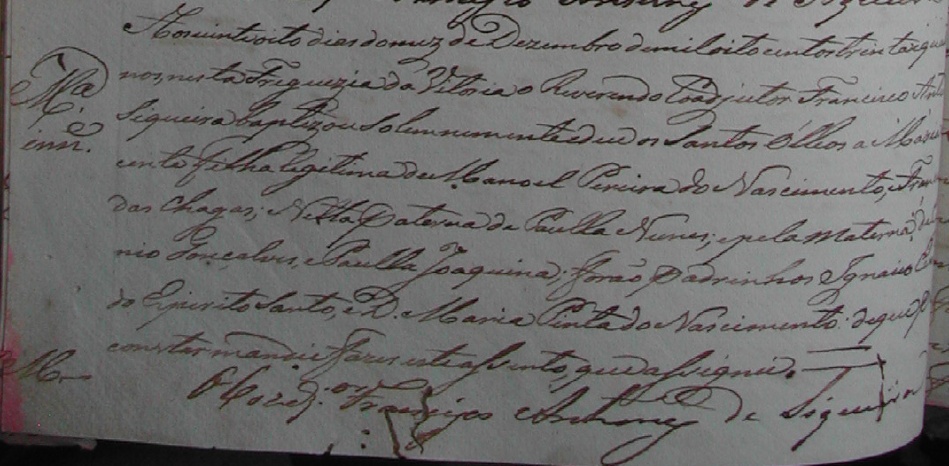 Aos vinte oito dias do mez de Dezembro de mil oito centos trin ta e qua
nos nesta Freguezia da Vitoria o Reverendo Coadjutor Francisco Ant
M.ª
inn.
Siqueira baptizou solemnemente e deu os Santos Olleos a Maria
filha legitima de Manoel Pereira do Nascimento, e Fran
das Chagas; Netta paterna de Paulla Nunes; e pela materna de
nio Gonçalves, e Paulla Joaquina; forão Padrinhos Ignacio
do Espirito Santo, e D. Maria Pinta do Nascimento: de que p
constar mandei fazer este assento, que assignei.
M
O Coadj.or Francisco Antonio de Siqueira